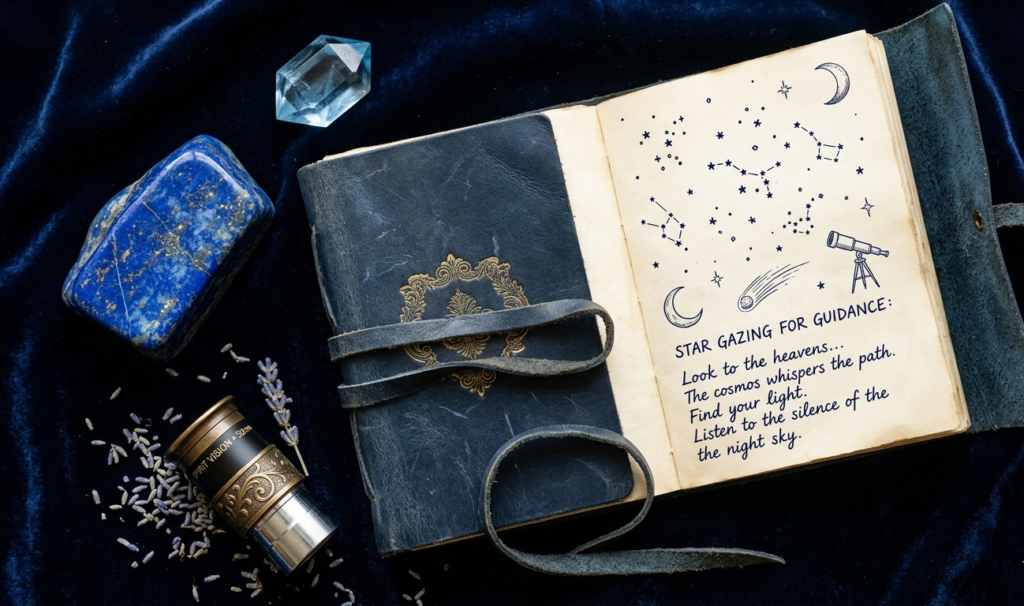 SPIRIT VISION • 50mm
STAR GAZING FOR GUIDANCE:
Look to the heavens...
The cosmos whispers the path.
Find your light.
Listen to the silence of the
the night sky.